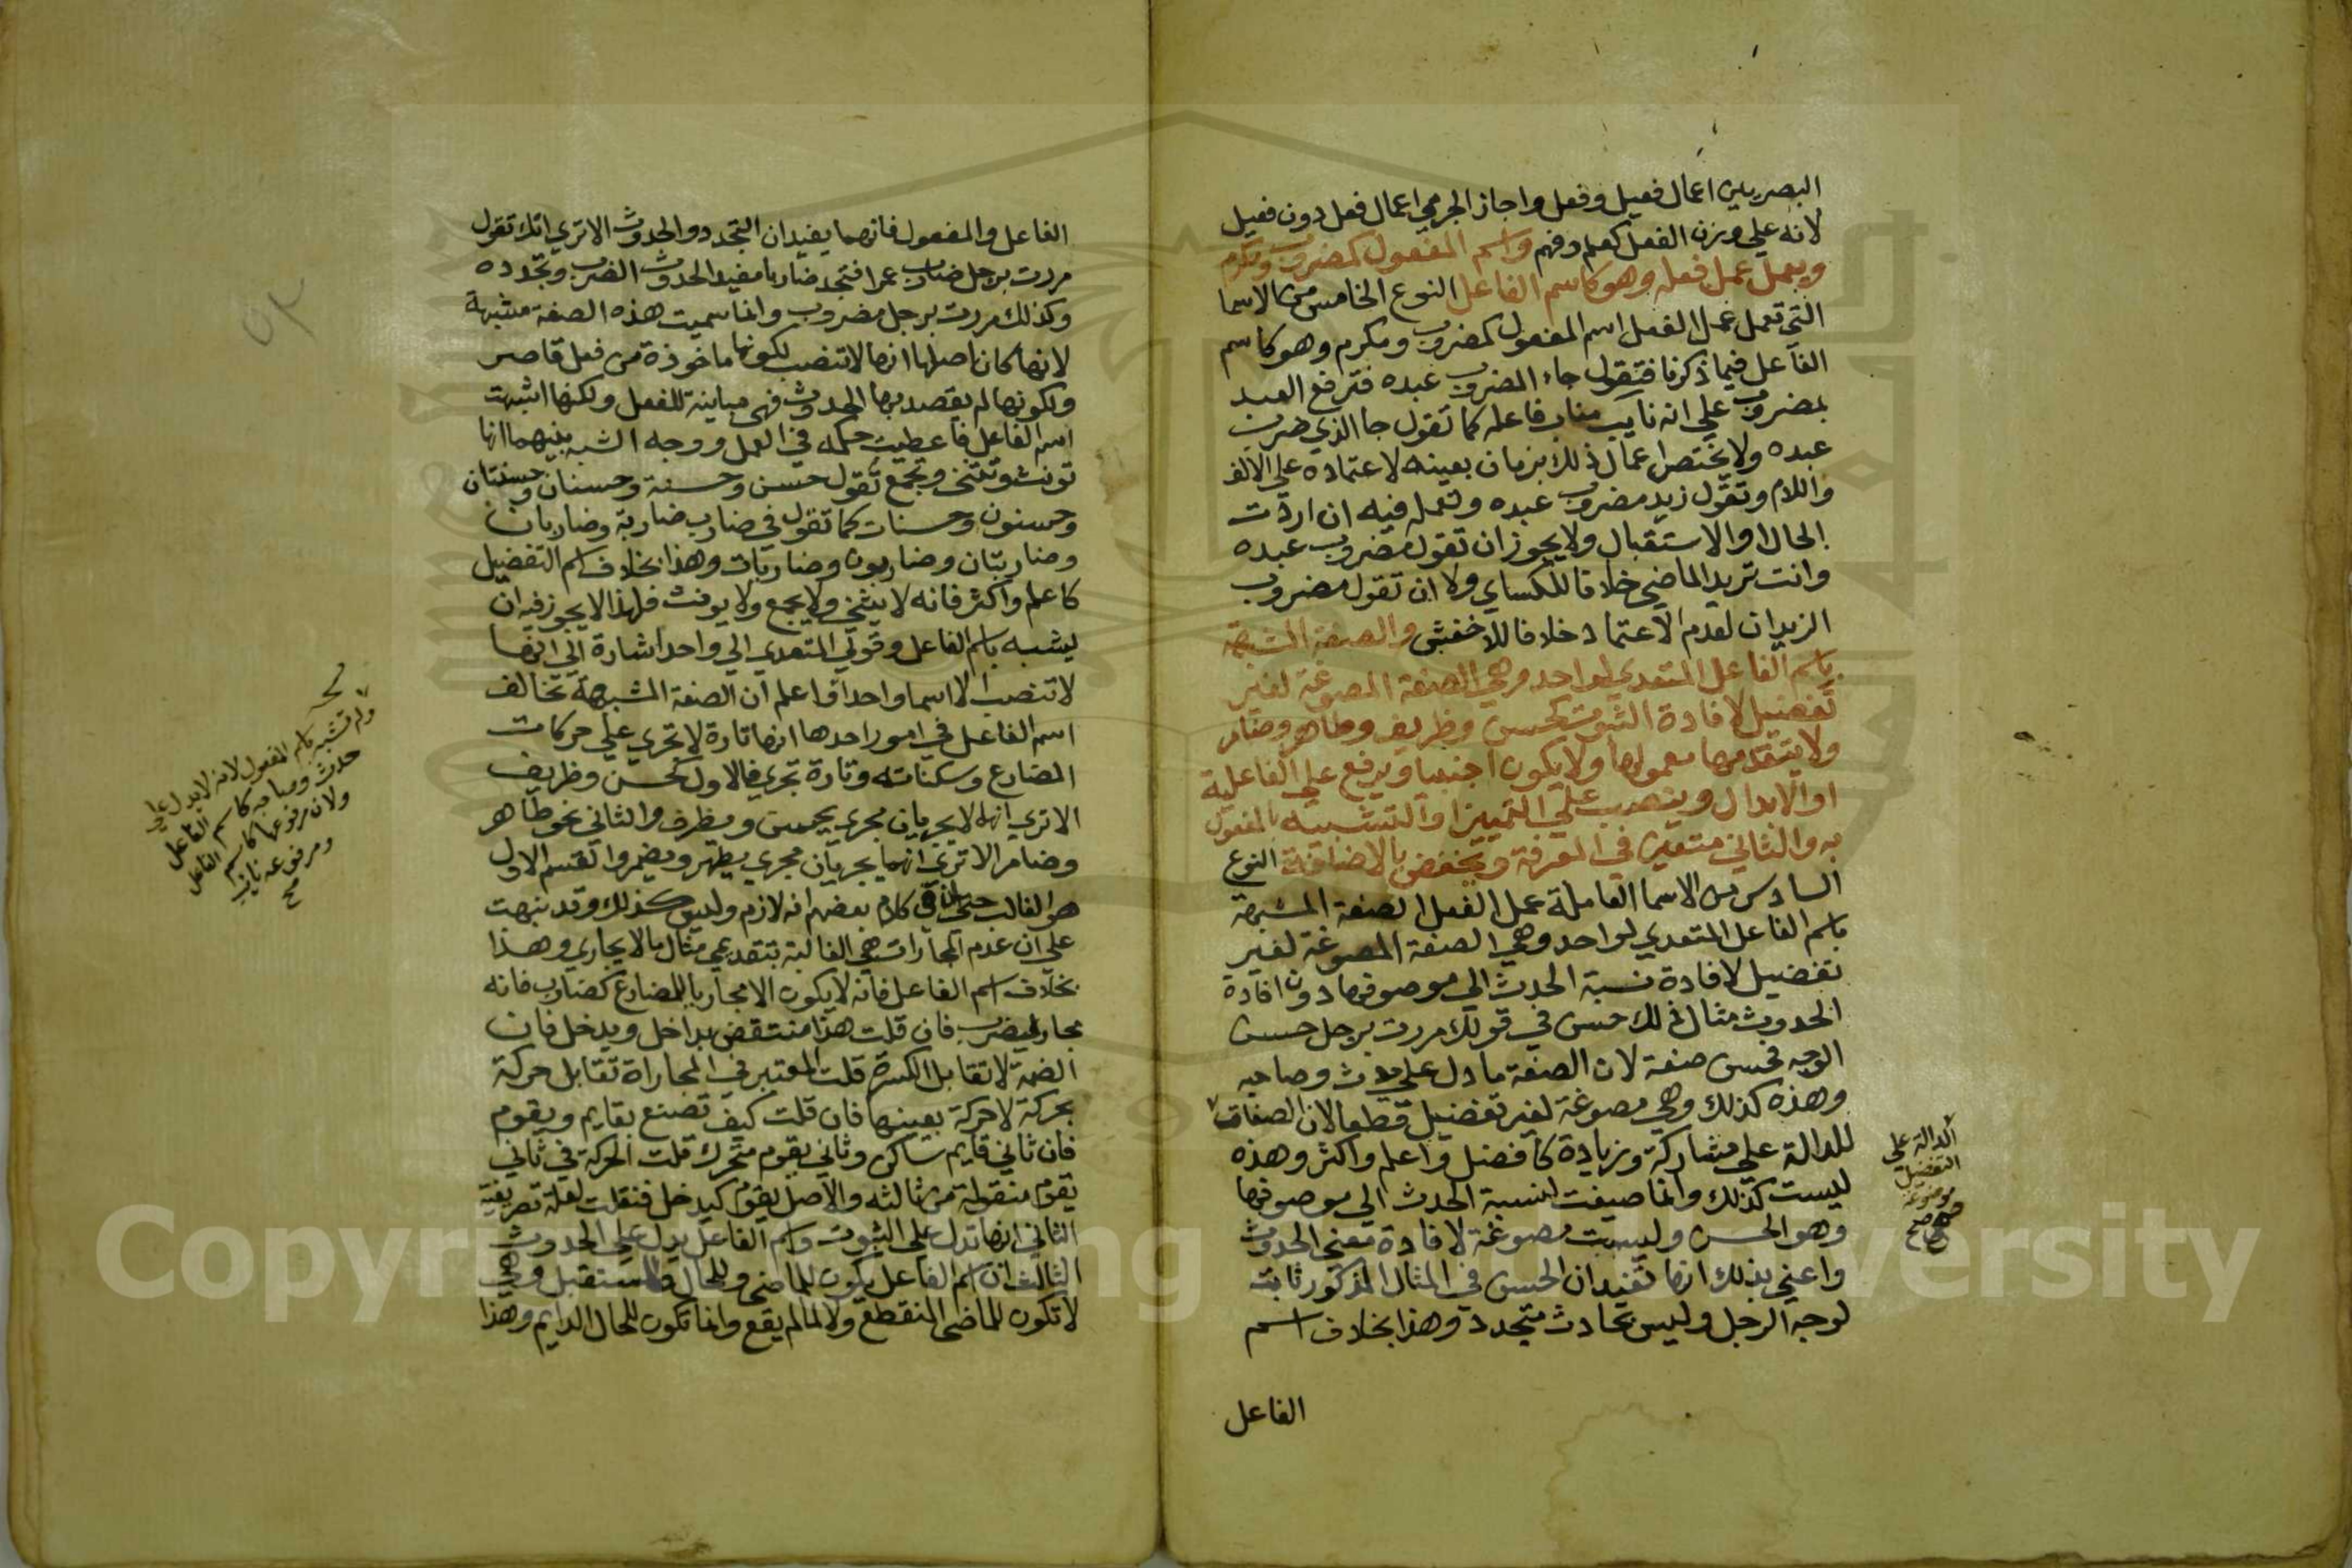 البصريين اعمال فعيل وفعل واجاز الجرمي اعمال فعل دون فعيل
لانه على وزن الفعل كعلم وفهم واسم المفعول كمضروب ومكرم
ويعمل عمل فعله وهو كاسم الفاعل النوع الخامس من الاسما
التي تعمل عمل الفعل اسم المفعول كمضروب ومكرم وهو كاسم
الفاعل فيما ذكرنا فتقول جاء المضروب عبده فترفع العبد
بمضروب على انه نايب مناب فاعله كما تقول جا الذي ضرب
عبده ولا يختص اعمال ذلك بزمان بعينه لاعتماده على الالف
واللام وتقول زيد مضروب عبده وتعمله فيه ان اردت
الحال او الاستقبال ولا يجوز ان تقول مضروب عبده
وانت تريد الماضي خلافا للكساي ولا ان تقول مضروب
الزيدان لعدم الاعتماد خلافا للاخفش والصفة المشبهة
باسم الفاعل المتعدي لواحد وهي الصفة المصوغة لغير
تفضيل لافادة الثبوت كحسن وظريف وطاهر وضامر
ولا يتقدمها معمولها ولا يكون اجنبيا ويرفع على الفاعلية
او الابدال وينصب على التمييز او التشبيه بالمفعول
به والثاني متعين في المعرفة ويخفض بالاضافة النوع
السادس من الاسما العاملة عمل الفعل الصفة المشبهة
باسم الفاعل المتعدي لواحد وهي الصفة المصوغة لغير
تفضيل لافادة نسبة الحدث الى موصوفها دون افادة
الحدوث مثال ذلك حسن في قولك مررت برجل حسن
الوجه فحسن صفة لان الصفة ما دل على حدث وصاحبه
وهذه كذلك وهي مصوغة لغير تفضيل قطعا لان الصفات
للدالة على مشاركة وزيادة كافضل واعلم واكثر وهذه
ليست كذلك وانما صيغت لنسبة الحدث الى موصوفها
وهو الحسن وليست مصوغة لافادة معنى الحدوث
واعني بذلك انها تفيد ان الحسن في المثال المذكور ثابت
لوجه الرجل وليس بحادث متجدد وهذا بخلاف اسم
الفاعل
الدالة على
التفضيل
موضوعة
صح
الفاعل والمفعول فانهما يفيدان التجدد والحدوث الاترى انك تقول
مررت برجل ضارب عمرا فتجد ضاربا مفيدا لحدوث الضرب وتجدده
وكذلك مررت برجل مضروب وانما سميت هذه الصفة مشبهة
لانها كان اصلها انها لا تنصب لكونها ماخوذة من فعل قاصر
ولكونها لم يقصد بها الحدوث فهي مباينة للفعل ولكنها اشبهت
اسم الفاعل فاعطيت حكمه في العمل ووجه الشبه بينهما انها
تونث وتثنى وتجمع تقول حسن وحسنة وحسنان وحسنتان
وحسنون وحسنات كما تقول في ضارب ضاربة وضاربان
وضاربتان وضاربون وضاربات وهذا بخلاف اسم التفضيل
كاعلم واكثر فانه لا يثنى ولا يجمع ولا يونث فلهذا لا يجوز فيه ان
يشبه باسم الفاعل وقولي المتعدي الى واحد اشارة الى انها
لا تنصب الا اسما واحدا واعلم ان الصفة المشبهة تخالف
اسم الفاعل في امور احدها انها تارة لا تجري على حركات
المضارع وسكناته وتارة تجري فالاول كحسن وظريف
الاترى انهما لا يجريان مجرى يحسن ويظرف والثاني نحو طاهر
وضامر الاترى انهما يجريان مجرى يطهر ويضمر والقسم الاول
هو الغالب حتى ان في كلام بعضهم انه لازم وليس كذلك وقد نبهت
على ان عدم المجارات هي الغالبة بتقديمي مثال ما لا يجاري وهذا
بخلاف اسم الفاعل فانه لا يكون الا مجاريا للمضارع كضارب فانه
مجار ليضرب فان قلت هذا منتقض بداخل ويدخل فان
الضمة لا تقابل الكسرة قلت المعتبر في المجاراة تقابل حركة
بحركة لا حركة بعينها فان قلت كيف تصنع بقايم ويقوم
فان ثاني قايم ساكن وثاني يقوم متحرك قلت الحركة في ثاني
يقوم منقولة من ثالثه والاصل يقوم كيدخل فنقلت لعلة تصريفية
الثاني انها تدل على الثبوت واسم الفاعل يدل على الحدوث
الثالث ان اسم الفاعل يكون للماضي وللحال وللمستقبل وهي
لا تكون للماضي المنقطع ولا لما لم يقع وانما تكون للحال الدايم وهذا
ولم تشبه باسم المفعول لانه لا يدل على
حدث وصاحبه كاسم الفاعل
ولان مرفوعها كاسم الفاعل
ومرفوعه نايب
صح
Copyright © King Saud University